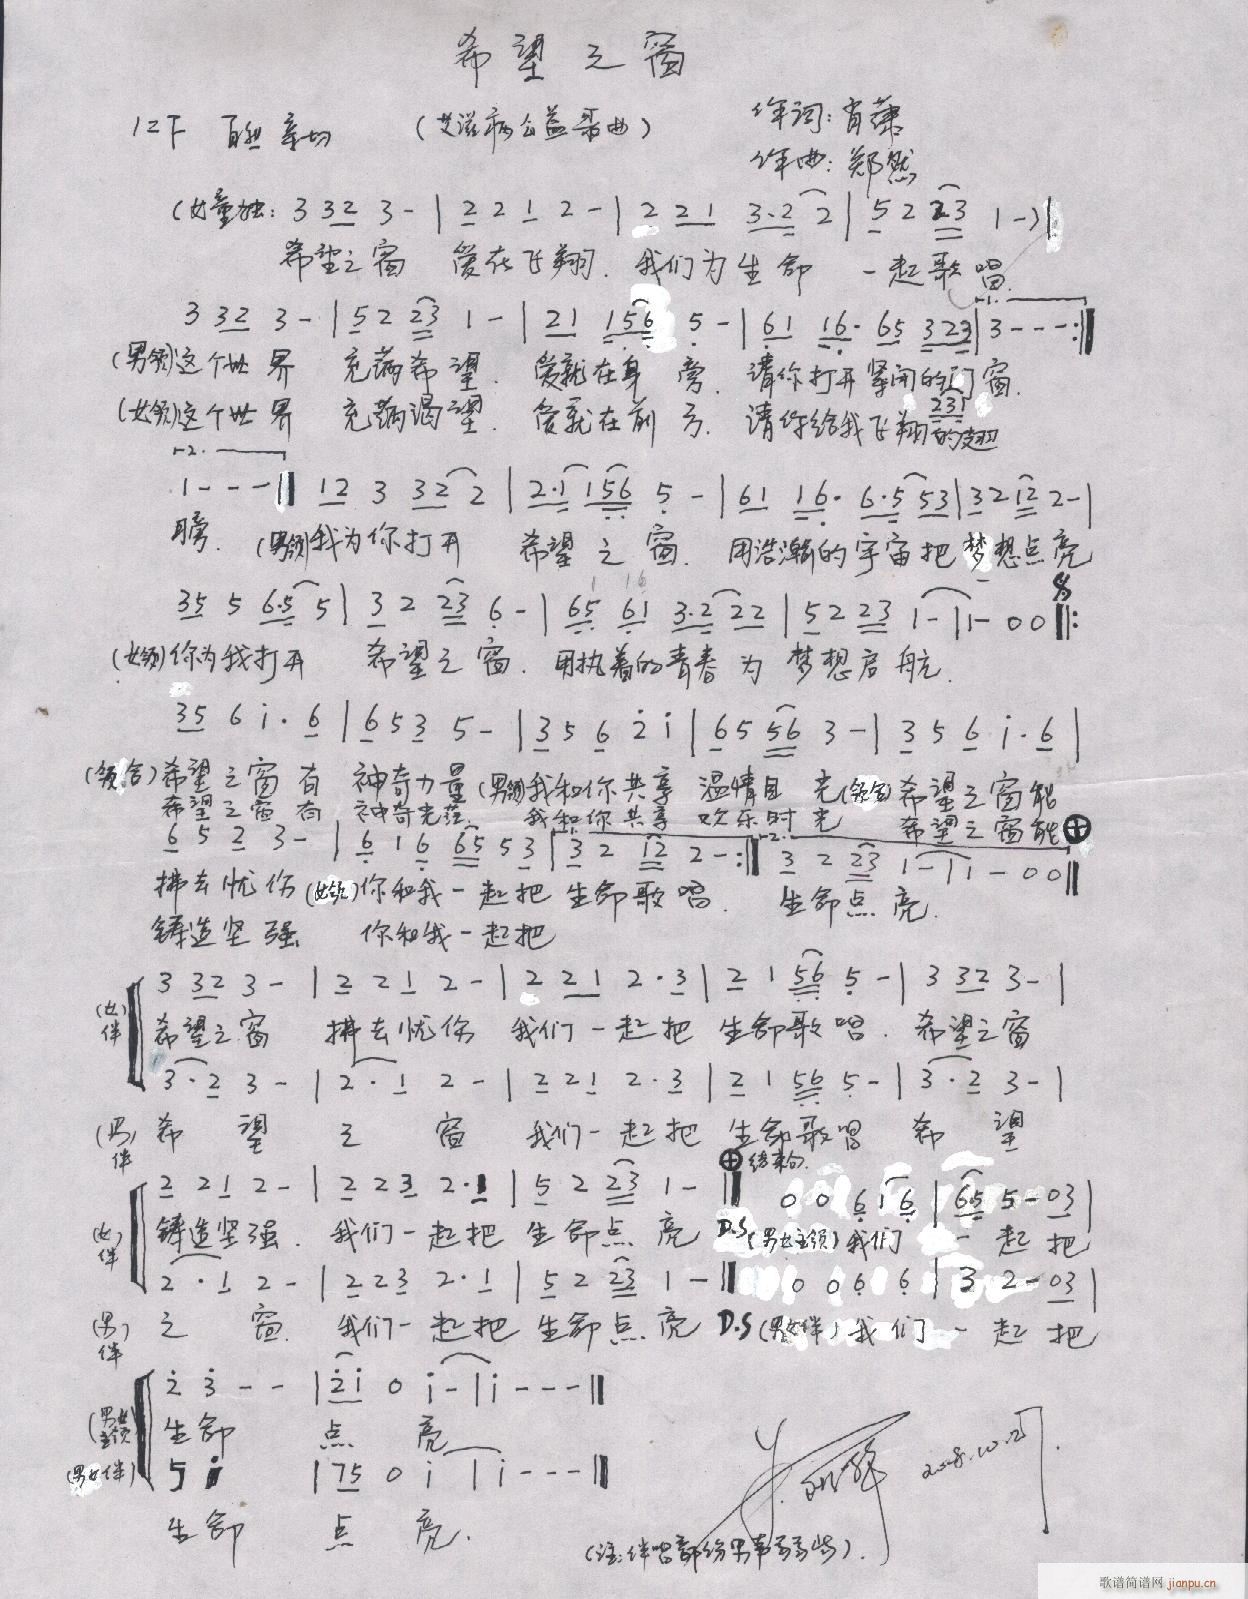 希望之窗
(艾滋病公益歌曲)
作词:肖萧
作曲:郑然
(女童独: 3 32 3 - | 2 2 1 2 - | 2 2 1 3·2 2 | 5 2 23 1 -)
希望之窗 爱在飞翔. 我们为生命 一起歌唱.
3 32 3 - | 5 2 23 1 - | 21 156 5 - | 61 16· 65 323 | 3 - - - :||
(男领)这个世界 充满希望. 爱就在身旁. 请你打开紧闭的门窗.
(女领)这个世界 充满渴望. 爱就在前方. 请你给我飞翔的翅
231
1 - - - || 12 3 32 2 | 2·1 156 5 - | 61 16· 6·5 53 | 3 2 12 2 - |
膀. (男领)我为你打开 希望之窗. 用浩瀚的宇宙把梦想点亮
35 5 6·5 5 | 3 2 23 6 - | 65 61 3·2 22 | 5 2 23 1 - | 1 - 0 0 ||:
(女领)你为我打开 希望之窗. 用执着的青春为梦想启航.
35 6 i· 6 | 6 5 3 5 - | 3 5 6 2 i | 6 5 56 3 - | 3 5 6 i· 6 |
(领合)希望之窗有 神奇力量 (男领)我和你共享 温情目光(领合)希望之窗能
希望之窗有 神奇光芒. 我和你共享 欢乐时光 希望之窗能
6 5 2 3 - | 6 1 6 65 5 3 | 3 2 12 2 - :|| 3 2 23 1 - | 1 - 0 0 ||
拂去忧伤 (女领)你和我一起把 生命歌唱. 生命点亮.
铸造坚强 你和我一起把
3 32 3 - | 2 2 1 2 - | 2 2 1 2·3 | 2 1 56 5 - | 3 32 3 - |
(女)伴 希望之窗 拂去忧伤 我们一起把 生命歌唱. 希望之窗
3·2 3 - | 2·1 2 - | 2 2 1 2·3 | 2 1 56 5 - | 3·2 3 - |
(男)伴 希望之窗 我们一起把 生命歌唱 希望
结束句.
2 2 1 2 - | 2 2 3 2·1 | 5 2 23 1 - || 0 0 6 1 6 | 65 5 - 03 |
(女)伴 铸造坚强. 我们一起把 生命点亮 D.S (男女主领)我们一起把
2·1 2 - | 2 2 3 2·1 | 5 2 23 1 - || 0 0 6 6 | 3 2 - 03 |
(男)伴 之窗. 我们一起把 生命点亮 D.S (男女伴)我们一起把
2 3 - - | 2i 0 i - | i - - - ||
(男女主领) 生命 点 亮
5 i | 75 0 i | i - - - ||
(男女伴) 生命 点 亮.
歌谱简谱网 jianpu.cn